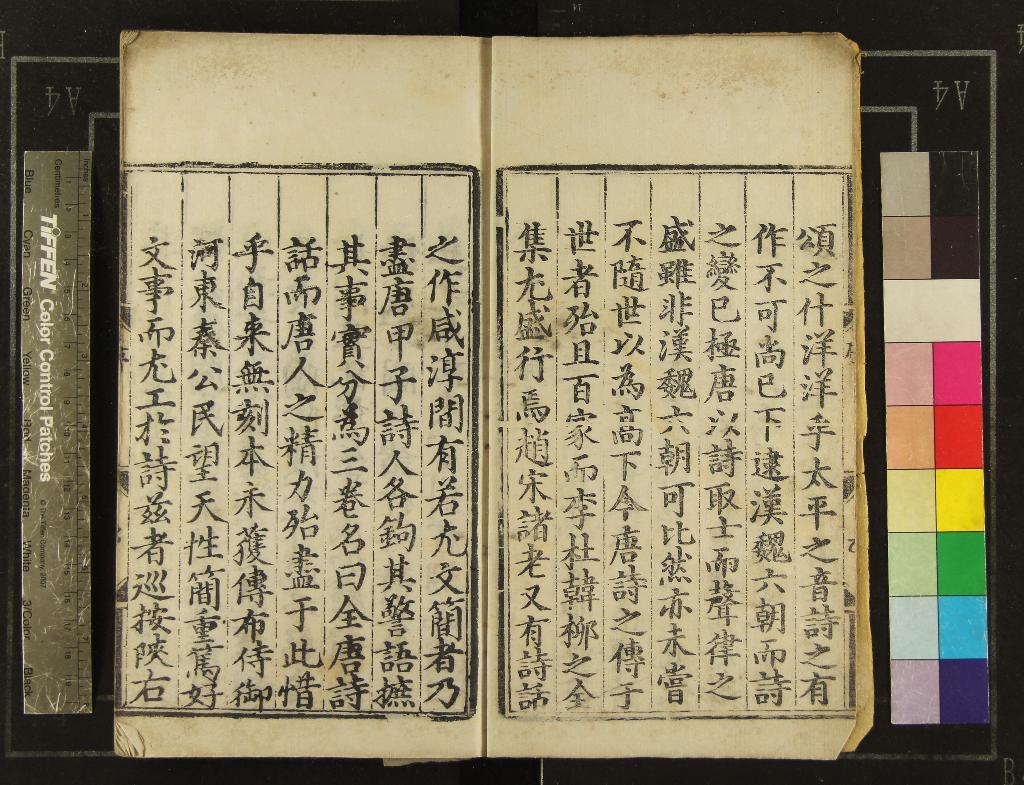 頌之什洋洋乎太平之音詩之有
作不可尚已下逮漢魏六朝而詩
之變已極唐以詩取士而聲律之
盛雖非漢魏六朝可比然亦未嘗
不隨世以為高下今唐詩之傳于
世者殆且百家而李杜韓柳之全
集尤盛行焉趙宋諸老又有詩話
之作咸淳間有若尤文簡者乃
盡唐甲子詩人各鉤其警語摭
其事實分為三卷名曰全唐詩
話而唐人之精力殆盡于此惜
乎自来無刻本未獲傳布侍御
河東秦公民望天性簡重篤好
文事而尤工於詩茲者巡按陝右
A4
A4
Inches
Centimetres
TIFFEN Color Control Patches
© The Tiffen Company, 2007
Blue
Cyan
Green
Yellow
Red
Magenta
White
3/Color
Black